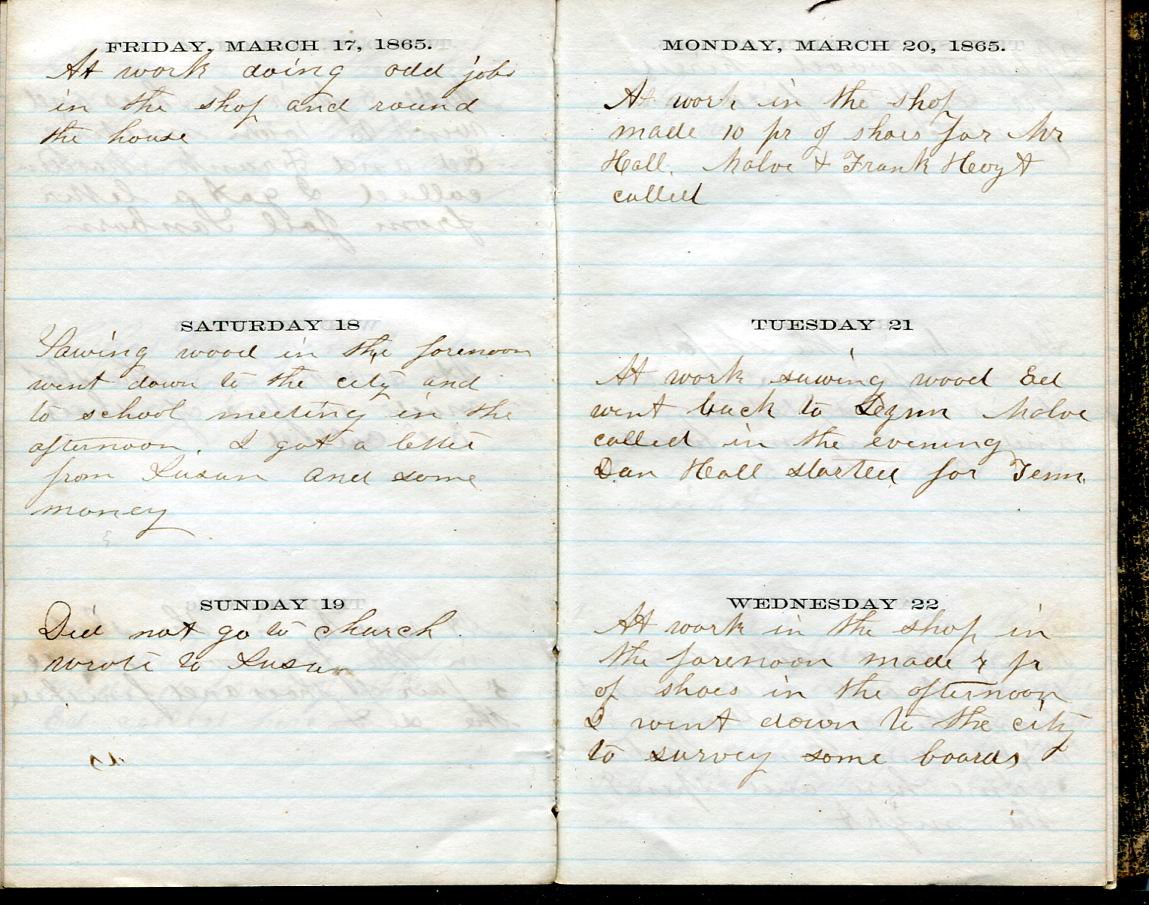 FRIDAY, MARCH 17, 1865.
At work doing odd jobs
in the shop and round
the house
SATURDAY 18
Sawing wood in the forenoon
went down to the city and
to school meeting in the
afternoon. I got a letter
from Susan and some
money
SUNDAY 19
Did not go to church
wrote to Susan
MONDAY, MARCH 20, 1865.
At work in the shop
made 10 pr of shoes for Mr
Hall. Malve & Frank Hoyt
called
TUESDAY 21
At work sawing wood Ed
went back to Lynn Malve
called in the evening
Dan Hall started for Tenn.
WEDNESDAY 22
At work in the shop in
the forenoon made pr
of shoes in the afternoon
I went down to the city
to survey some boards